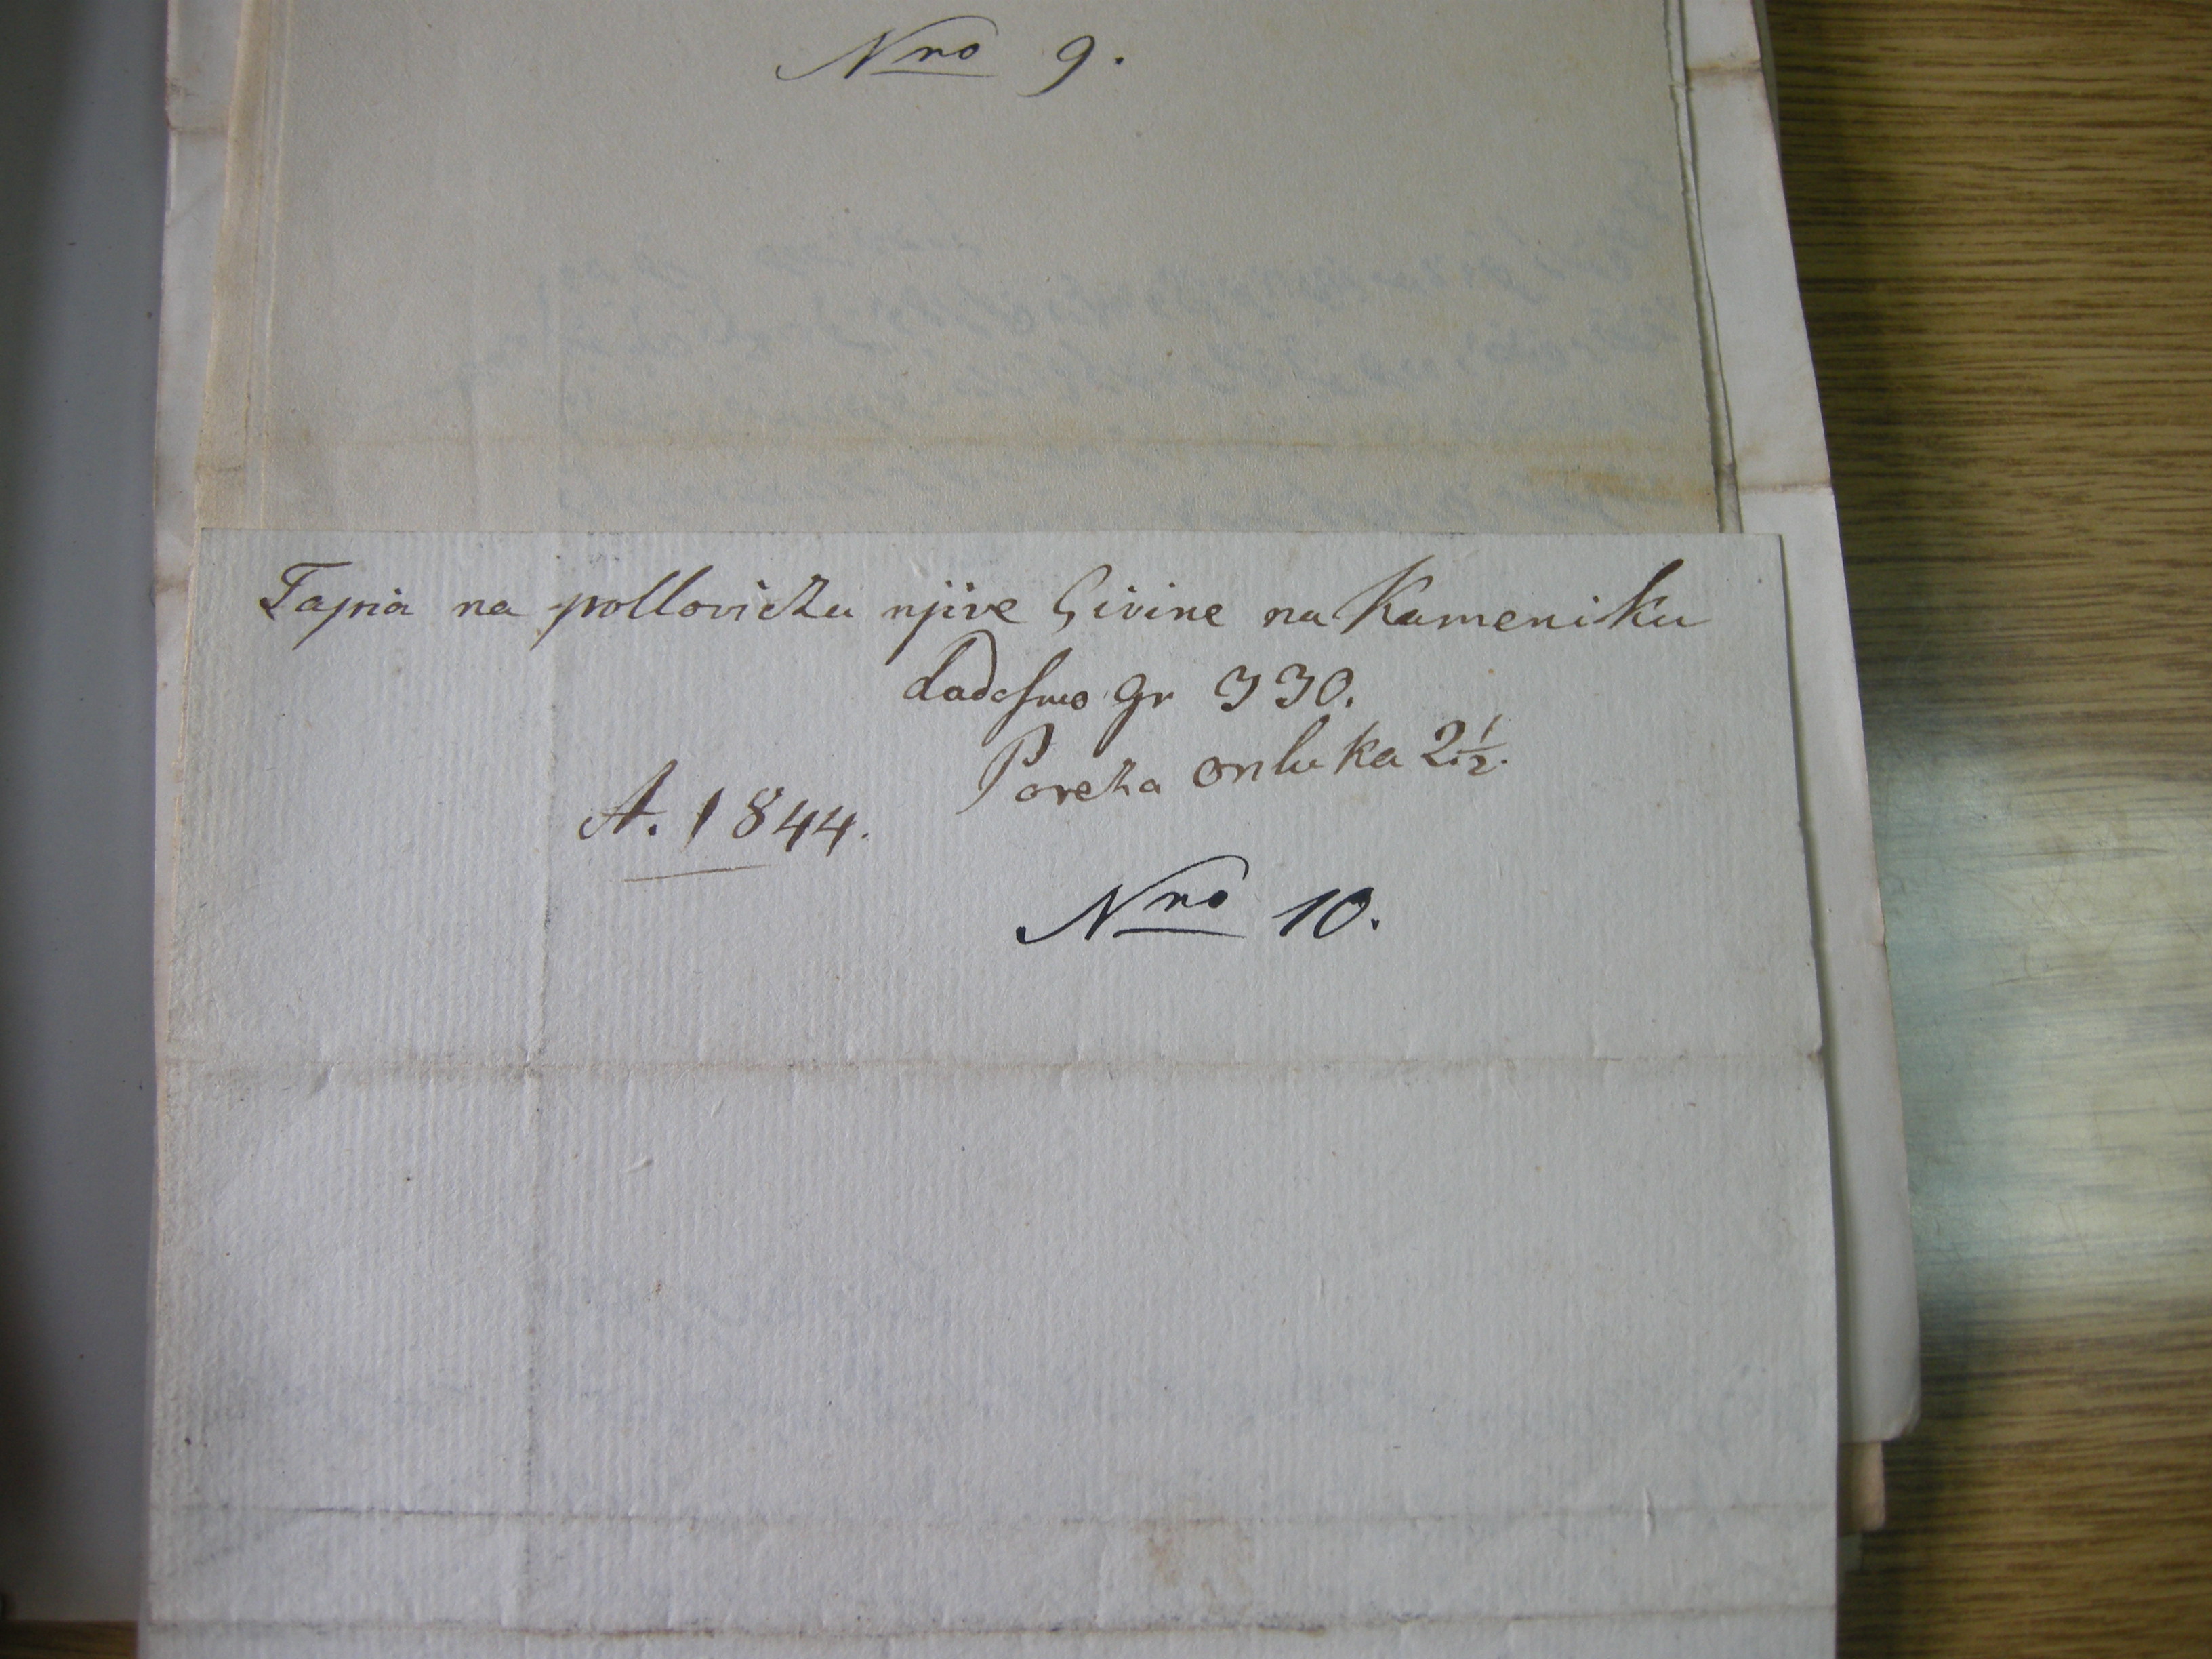 Nro 9.
Tapia na pollovicżu njive Givine na Kameniku
dadosmo gr 330.
Poreża onluka 2½.
A. 1844.
Nro 10.